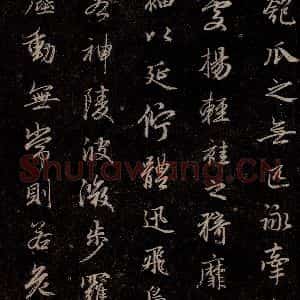 匏瓜之無匹詠牽
處揚輕袿之猗靡
袖以延佇體迅飛鳧
若神陵波微步羅
塵動無常則若危
Shufawang.CN